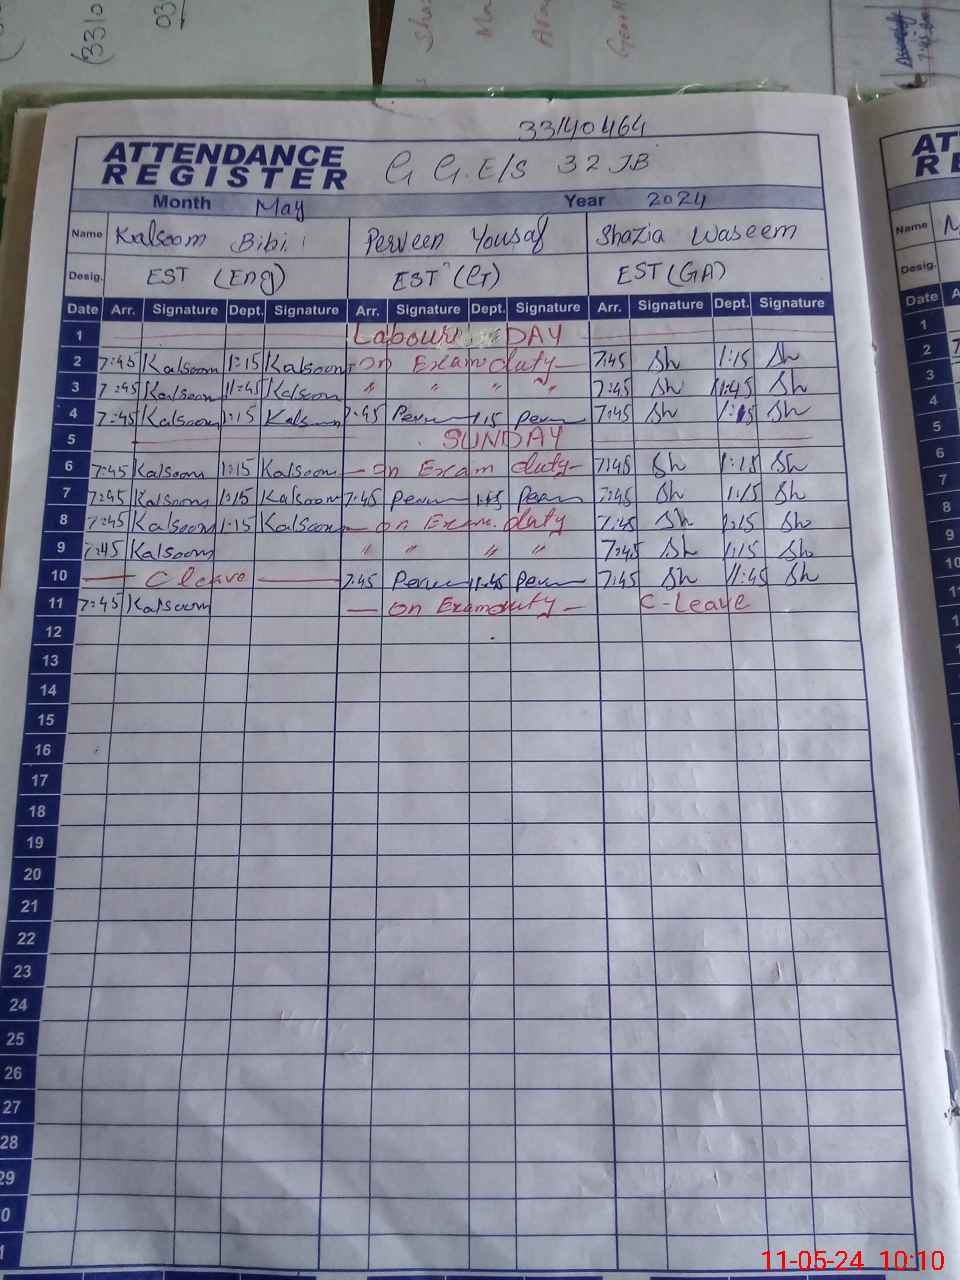 (3310
03
33140464
ATTENDANCE
REGISTER
G G.E/S 32 JB
Month May Year 2024
Name Kalsoom Bibi Perveen Yousaf Shazia Waseem
Desig. EST (Eng) EST (PT) EST (GA)
Date Arr. Signature Dept. Signature Arr. Signature Dept. Signature Arr. Signature Dept. Signature
1 Labour DAY
2 7:45 Kalsoom 1:15 Kalsoom - on Exam duty - 7:45 Sh 1:15 Sh
3 7:45 Kalsoom 11:45 Kalsoom " " " " 7:45 Sh 11:45 Sh
4 7:45 Kalsoom 1:15 Kalsoom 7:45 Perveen 1:15 Perveen 7:45 Sh 1:15 Sh
5 SUNDAY
6 7:45 Kalsoom 1:15 Kalsoom - on Exam duty - 7:45 Sh 1:15 Sh
7 7:45 Kalsoom 1:15 Kalsoom 7:45 Perveen 1:15 Perveen 7:45 Sh 1:15 Sh
8 7:45 Kalsoom 1:15 Kalsoom - on Exam duty 7:45 Sh 1:15 Sh
9 7:45 Kalsoom " " " " 7:45 Sh 1:15 Sh
10 C leave 7:45 Perveen 11:45 Perveen 7:45 Sh 11:45 Sh
11 7:45 Kalsoom - on Exam duty - C-Leave
12
13
14
15
16
17
18
19
20
21
22
23
24
25
26
27
28
29
0
1
AT
RE
Name
Desig.
Date A
1
2
3
4
5
6
7
8
9
10
11-05-24 10:10